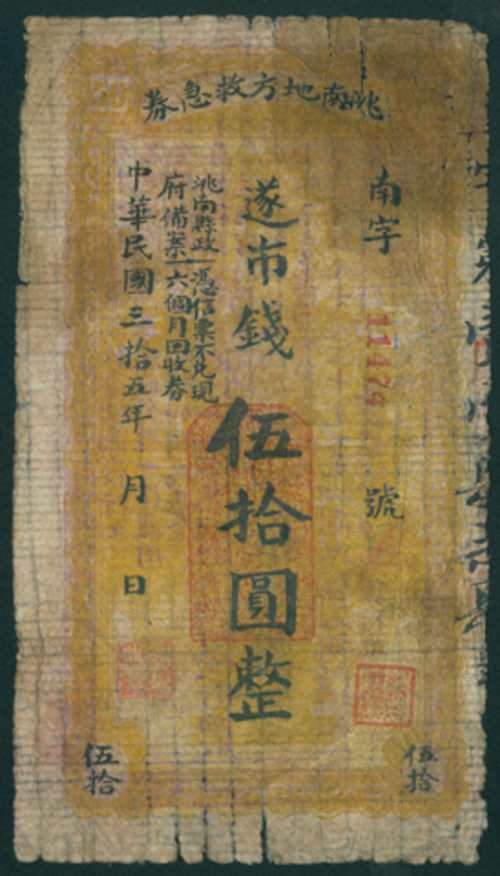 洮南地方救急券
南字
11474
號
遂市錢
伍拾圓整
洮南縣政府備案
憑信票不兌現
六個月回收券
中華民國三拾五年 月 日
伍拾
伍拾